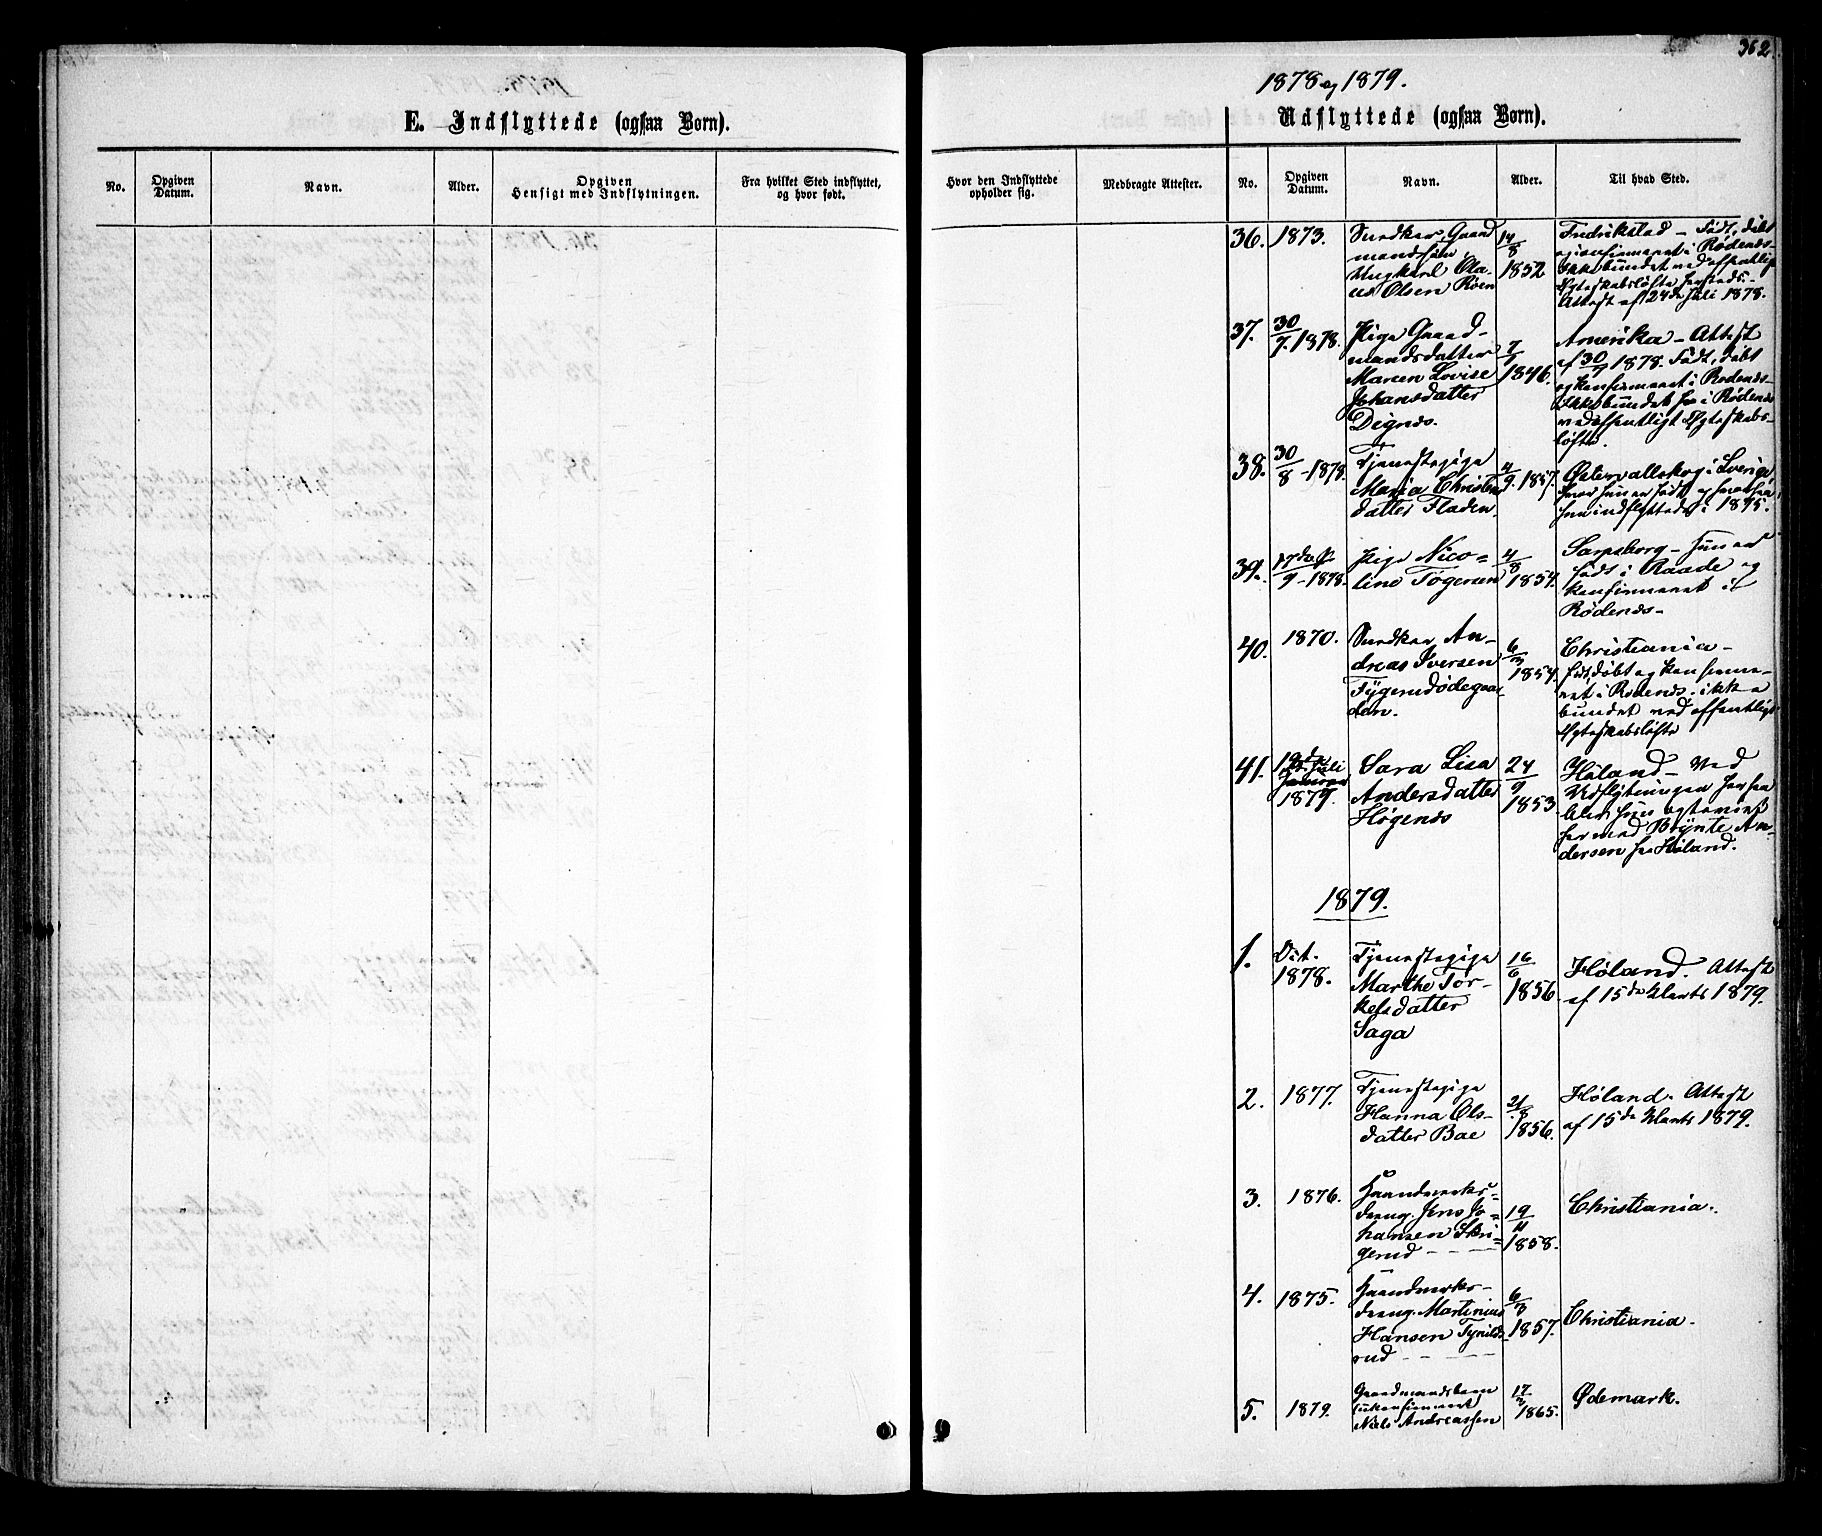 362
1878 og 1879.
E. Indflyttede (ogsaa Børn).
Udflyttede (ogsaa Børn).
No.
Opgiven Datum.
Navn.
Alder.
Opgiven Hensigt med Indflytningen.
Fra hvilket Sted indflyttet, og hvor født.
Hvor den Indflyttede opholder sig.
Medbragte Attester.
No.
Opgiven Datum.
Navn.
Alder.
Til hvad Sted.
36. 1873.
Snedker, Gaard
mandssøn
Ungkarl Ola-
us Olsen Røen
14/8
1852
Fredrikstad – Født, døbt
og confirmeret i Rødenæs
Ikke bundet ved offentligt
Ægteskabsløfte hersteds. –
Attest af 24de Juli 1878.
37. 30/7. 1878.
Pige Gaard-
mandsdatter
Maren Lovise
Johansdatter
Dignæs.
7/1
1846.
Amerika – Attest
af 30/7 1878. Født, døbt
og konfirmeret i Rødenæs –
Ikke bundet her i Rødenæs
ved offentligt Ægteskabs-
løfte.
38. 30/8 - 1878.
Tjenestepige
Maria Christens
datter Fladen.
4/9. 1857.
Østervallskog i Sverige,
hvor hun er født og hvorfra
hun indflyttede i 1875.
39. 17de
9 - 1878.
Pige Nico=
line Tøgersen
4/8
1854.
Sarpsborg – hun er
født i Raade og
konfirmeret i
Rødenæs –
40. 1870.
Snedker An-
dreas Iversen
Tygerudødegaar-
den.
6/3
1854.
Christiania –
født, døbt og konfirme-
ret i Rødenæs. ikke
bundet ved offentligt
Ægteskabsløfte
41. 19de Juli
1879.
Sara Lisa
Andersdatter
Høgenæs
24/9
1853
Høland – Ved
Udflytningen herfra
blev hun ægteviet
her med Brynte An-
dersen fra Høland.
1879.
1. Oct.
1878.
Tjenestepige
Marthe Tor-
kelsdatter
Saga
16/6
1856.
Høland. Attest
af 15de Marts 1879.
2. 1877.
Tjenestepige
Hanna Ols-
datter Bae
21/8
1856.
Høland. Attest
af 15de Marts 1879.
3. 1876.
Haandværks-
dreng. Jens Jo=
hansen Skri=
gerud
19/11
1858.
Christiania.
4. 1875.
Haandværks-
dreng. Martinius
Hansen Tyrilds
rud
6/3
1857.
Christiania.
5. 1879.
Gaardmandsbarn
ukonfirmeret
Niels Andreassen
17/2
1865.
Ødemark.